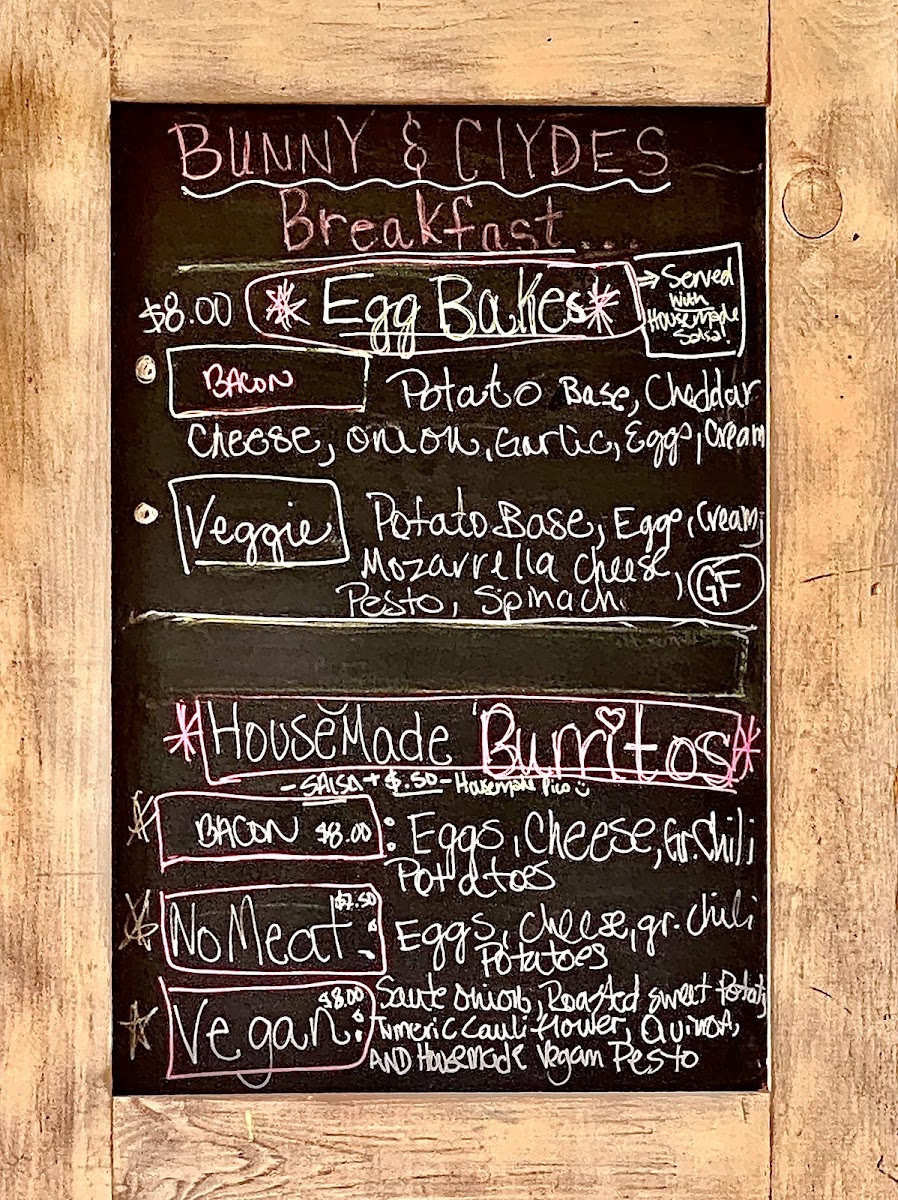 BUNNY & ClYDES
Breakfast...
$8.00 * Egg BaKes *
⇒ Served
with
HouseMade
Salsa!
BACON Potato Base, Cheddar
Cheese, Onion, Garlic, Eggs, Cream
Veggie Potato Base, Eggs, Cream,
Mozarrella Cheese,
Pesto, Spinach GF
* HouseMade Burritos *
- SALSA + $.50 - Housemade Pico
BACON $8.00 : Eggs, Cheese, Gr. Chili
Potatoes
No Meat $7.50 : Eggs, Cheese, gr. Chili
Potatoes
Vegan: $8.00 Saute onion, Roasted sweet Potato,
Tumeric Cauliflower, Quinoa,
AND Housemade Vegan Pesto